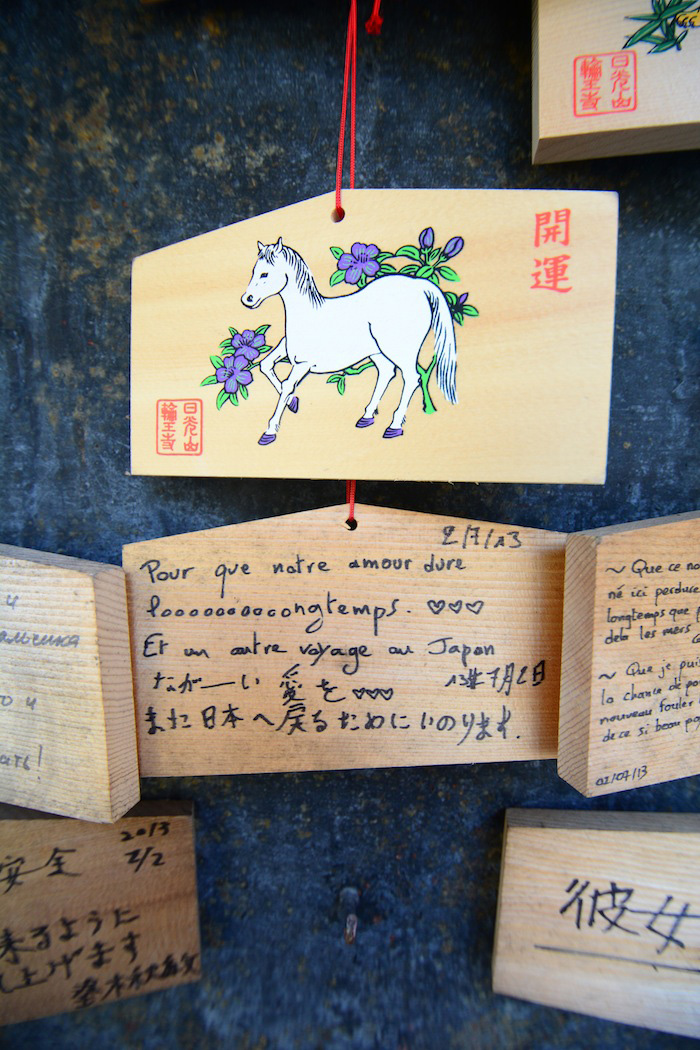 日光山
輪王寺
開運
日光山
輪王寺
2/7/13
Pour que notre amour dure
looooooooongtemps. ♡♡♡
Et un autre voyage au Japon
ながーい 愛を ♡♡♡ 13年7月2日
また日本へ戻るためにいのります.
и
альчика
о и
ать!
~ Que ce no
né ici perdure
longtemps que
delà les mers
~ Que je puis
la chance de po
nouveau fouler
de ce si beau pa
02/07/13
安全
2013
来るように
し上げます
彼女